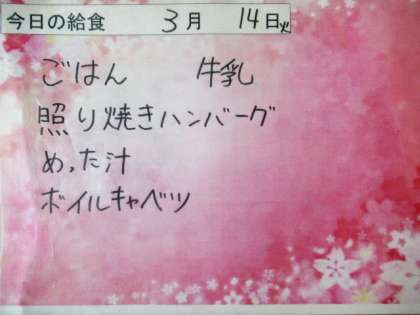 今日の給食 3月 14日火
ごはん 牛乳
照り焼きハンバーグ
めった汁
ボイルキャベツ